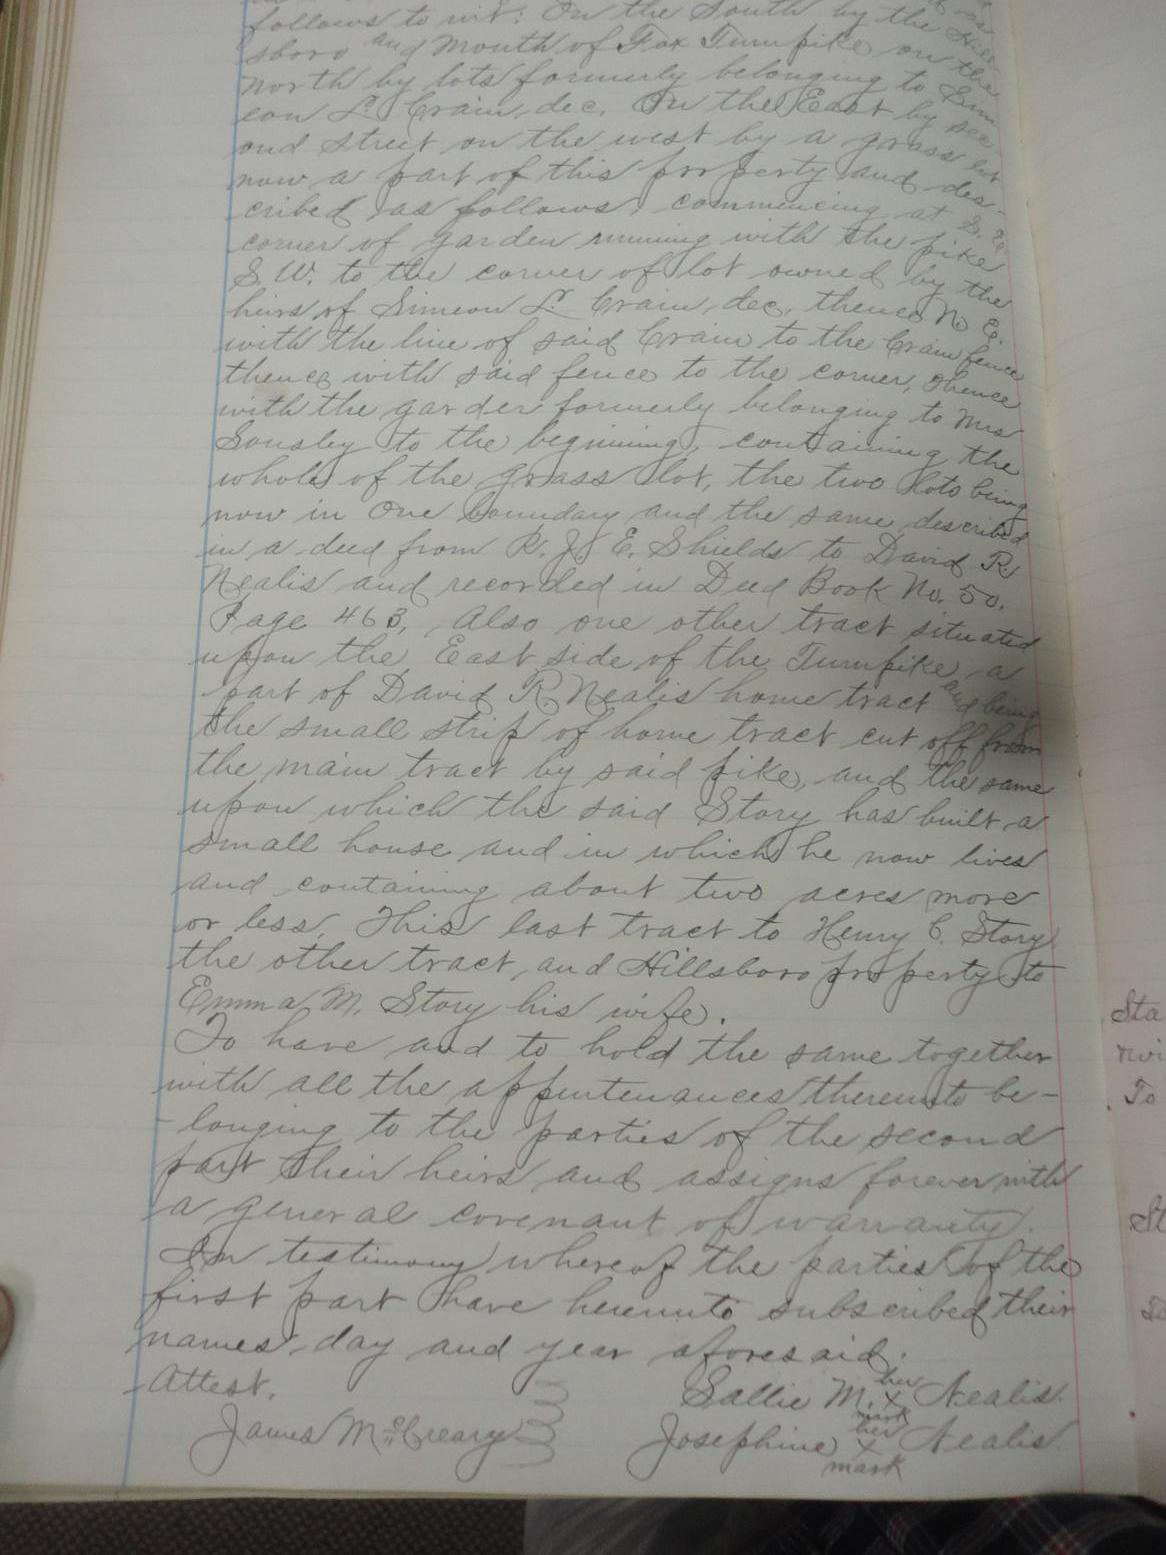 follows to wit: On the South by the Hill-
sboro and Mouth of Fox Turnpike on the
North by lots formerly belonging to Sim
eon L. Crain, dec. On the East by sec-
ond street on the west by a grass lot
now a part of this property and des-
cribed as follows, commencing at S. E
corner of garden running with the pike
S. W. to the corner of lot owned by the
heirs of Simeon L. Crain, dec, thence N. E.
with the line of said Crain to the Crain fence
thence with said fence to the corner, thence
with the garden formerly belonging to Mrs
Sousley to the beginning, containing the
whole of the grass lot, the two lots being
now in one boundary and the same described
in a deed from R. J. E. Shields to David R
Nealis and recorded in Deed Book No. 50.
Page 463, Also one other tract situated
upon the East side of the Turnpike, a
part of David R Nealis home tract and being
the small strip of home tract cut off from
the main tract by said pike, and the same
upon which the said Story has built a
small house and in which he now lives
and containing about two acres more
or less. This last tract to Henry C. Story
the other tract, and Hillsboro property to
Emma M. Story his wife.
To have and to hold the same together
with all the appurtenances thereunto be-
-longing to the parties of the second
part their heirs and assigns forever with
a general covenant of warranty.
In testimony whereof the parties of the
first part have hereunto subscribed their
names, day and year aforesaid.
Attest. Sallie M. her x mark Nealis.
James McCreary Josephine her x mark Nealis
Sta
To
St